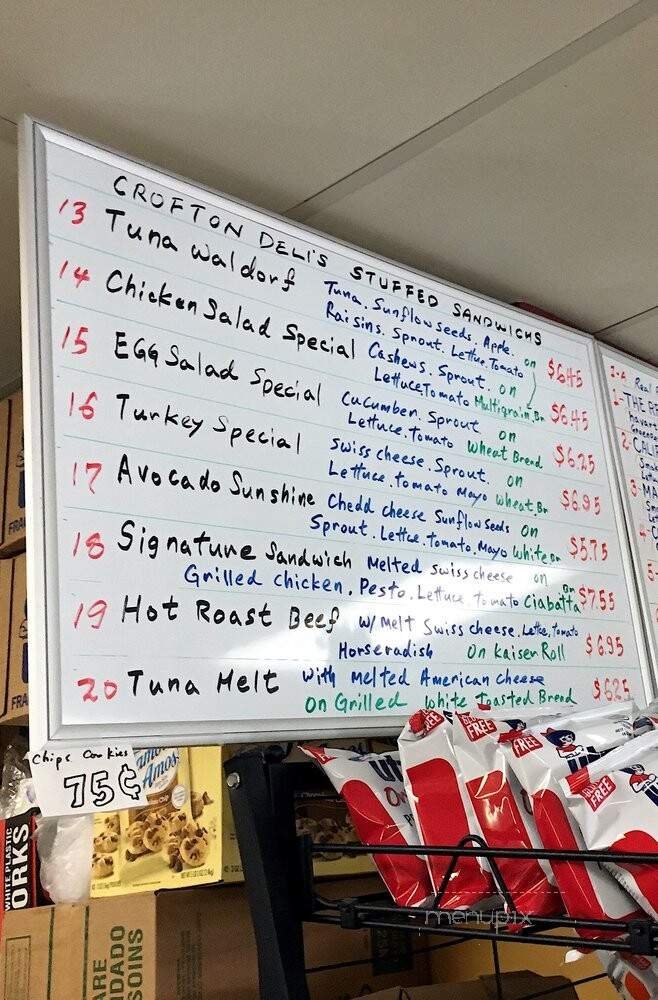 CROFTON DELI'S STUFFED SANDWICHS
13 Tuna Waldorf Tuna. Sunflowseeds. Apple. on $6.45
Raisins. Sprout. Lettuce. Tomato
14 Chicken Salad Special Cashews. Sprout. on $6.45
Lettuce Tomato Multigrain. Br
15 EGG Salad Special Cucumber. Sprout on $6.25
Lettuce. Tomato Wheat Bread
16 Turkey Special Swiss cheese. Sprout. on $6.95
Lettuce. Tomato Mayo Wheat. Br
17 Avocado Sunshine Chedd cheese Sunflowseeds on $5.75
Sprout. Lettce. Tomato. Mayo White Br
18 Signature Sandwich Melted Swiss cheese on $7.55
Grilled chicken. Pesto. Lettuce. Tomato Ciabatta Br
19 Hot Roast Beef w/ Melt Swiss cheese. Lettce, tomato $6.95
Horseradish On Kaiser Roll
20 Tuna Melt with melted American cheese $6.25
on Grilled White Toasted Bread
Chips Cookies
75¢
Amos
WHITE PLASTIC
ORKS
FREE
FREE
FREE
FREE
menupix